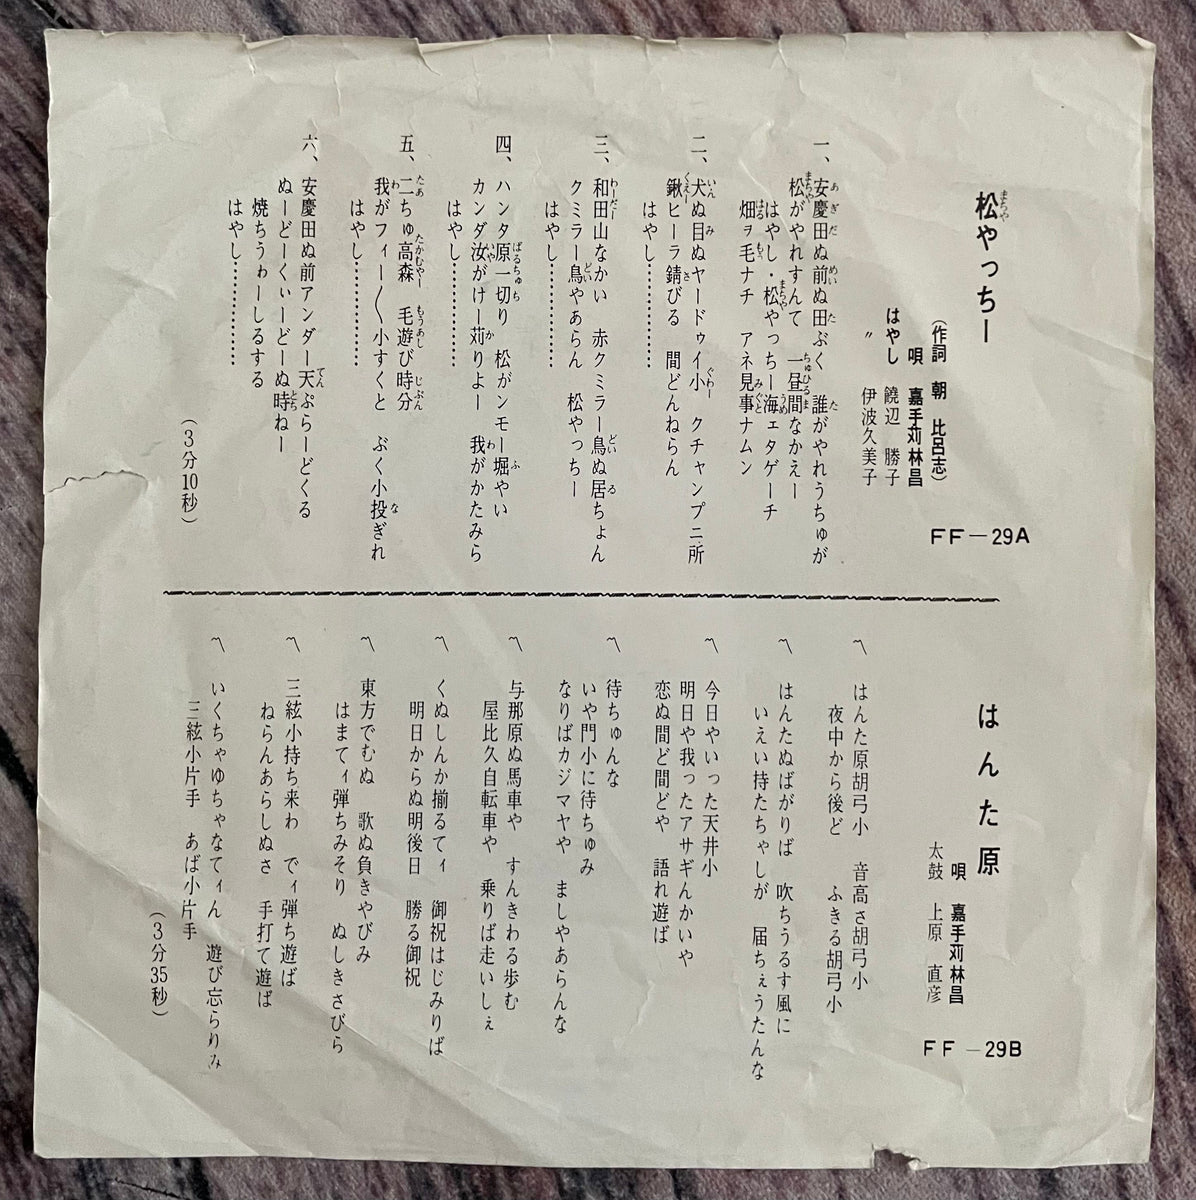 松やっちー
(作詞 朝 比呂志)
唄 嘉手苅林昌
はやし 饒辺 勝子
〃 伊波久美子
FF－29A
一、安慶田ぬ前ぬ田ぶく 誰がやれうちゅが
松がやれすんて 一昼間なかえー
はやし・松やっちー海ェタゲーチ
畑ヲ毛ナチ アネ見事ナムン
二、犬ぬ目ぬヤードゥイ小 クチャンプニ所
鍬ヒーラ錆びる 間どんねらん
はやし…………
三、和田山なかい 赤クミラー鳥ぬ居ちょん
クミラー鳥やあらん 松やっちー
はやし…………
四、ハンタ原一切り 松がンモー堀やい
カンダ汝がけー苅りよー 我がかたみら
はやし…………
五、二ちゅ高森 毛遊び時分
我がフィー〳〵小すくと ぶく小投ぎれ
はやし…………
六、安慶田ぬ前アンダー天ぷらーどくる
ぬーどーくぃーどーぬ時ねー
焼ちうゎーしるする
はやし…………
(3分10秒)
はんた原
唄 嘉手苅林昌
太鼓 上原 直彦
FF－29B
〽 はんた原胡弓小 音高さ胡弓小
夜中から後ど ふきる胡弓小
〽 はんたぬばがりば 吹ちうるす風に
いえい持たちゃしが 届ちぇうたんな
〽 今日やいった天井小
明日や我ったアサギんかいや
恋ぬ間ど間どや 語れ遊ば
〽 待ちゅんな
いや門小に待ちゅみ
なりばカジマヤや ましやあらんな
〽 与那原ぬ馬車や すんきわる歩む
屋比久自転車や 乗りば走いしぇ
〽 くぬしんか揃るてィ 御祝はじみりば
明日からぬ明後日 勝る御祝
〽 東方でむぬ 歌ぬ負きやびみ
はまてィ弾ちみそり ぬしきさびら
〽 三絃小持ち来わ でィ弾ち遊ば
ねらんあらしぬさ 手打て遊ば
〽 いくちゃゆちゃなてィん 遊び忘らりみ
三絃小片手 あば小片手
(3分35秒)